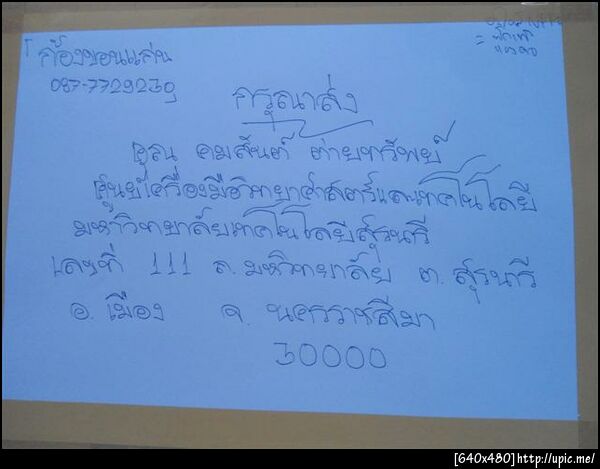 ก้องขอนแก่น
087-7729239
กรุณาส่ง
คุณ คมสันต์
ศูนย์เครื่องมือวิทยาศาสตร์และเทคโนโลยี
มหาวิทยาลัยเทคโนโลยีสุรนารี
เลขที่ 111 ถ.มหาวิทยาลัย ต.สุรนารี
อ.เมือง จ.นครราชสีมา
30000
[640x480]http://upic.me/